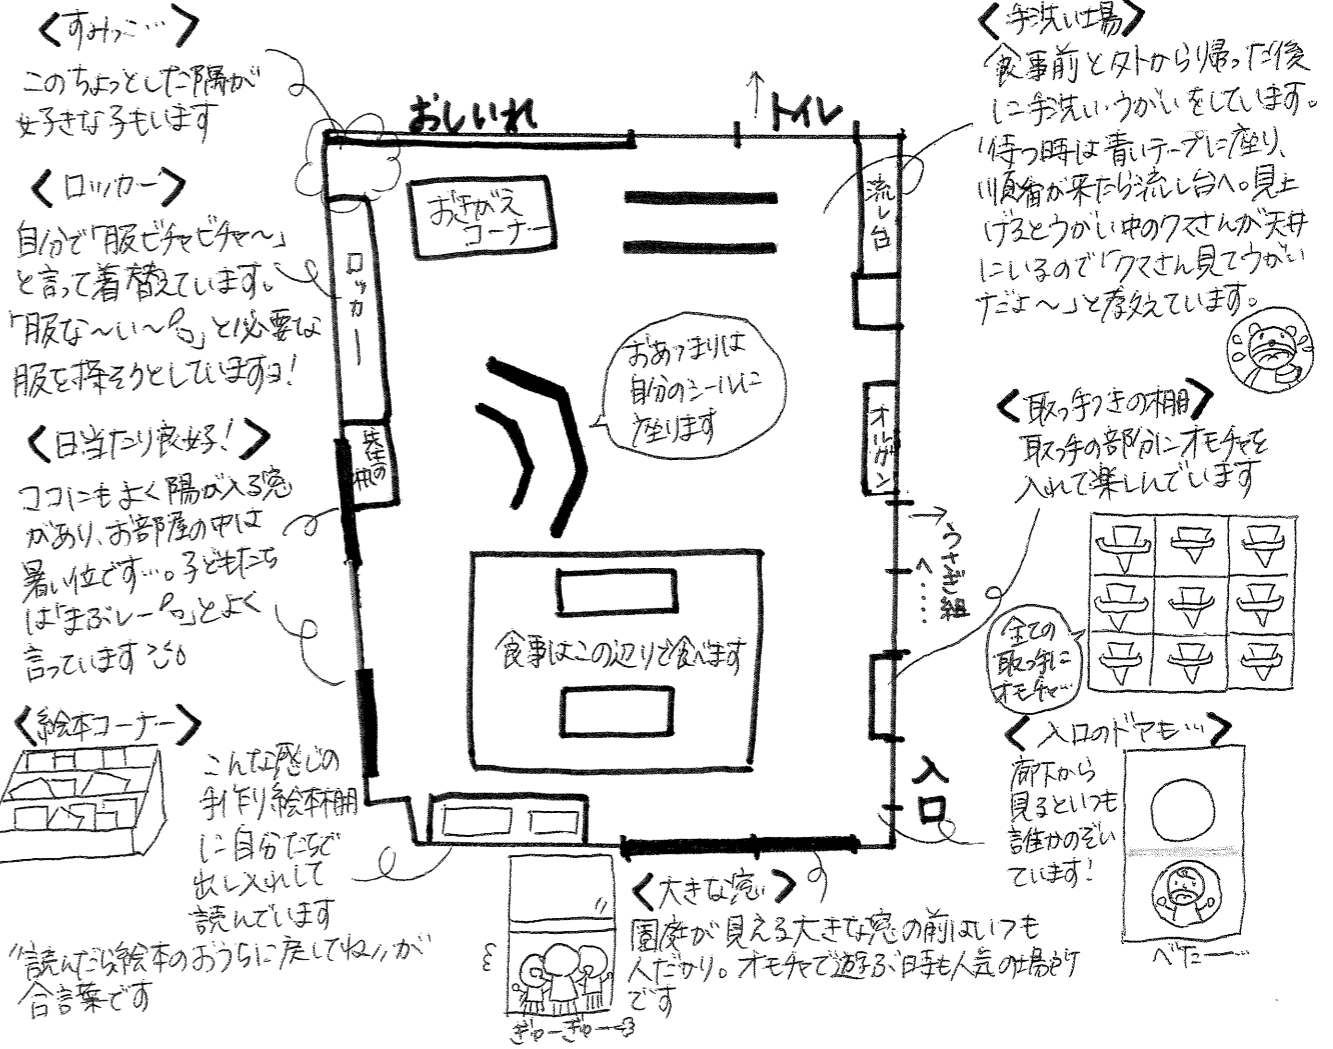 ＜すみっこ…＞
このちょっとした隅が
好きな子もいます
＜ロッカー＞
自分で「服ビチャビチャ〜」
と言って着替えています。
「服な〜い〜」と必要な
服を探そうとしていますヨ！
＜日当たり良好！＞
ココにもよく陽が入る窓
があり、お部屋の中は
暑い位です…。子どもたち
は「まぶしー」とよく
言っています
＜絵本コーナー＞
こんな感じの
手作り絵本棚
に自分たちで
出し入れして
読んでいます
"読んだら絵本のおうちに戻してね"が
合言葉です
おしいれ
↑トイレ
おきがえ
コーナー
流し台
ロッカー
先生の机
おあつまりは
自分のシールに
座ります
オルガン
→うさぎ組
へ....
食事はこの辺りで食べます
入口
＜手洗い場＞
食事前と外から帰った後
に手洗い・うがいをしています。
待つ時は青いテープに座り、
順番が来たら流し台へ。見上
げるとうがい中のクマさんが天井
にいるので「クマさん見てうがい
だよ〜」と教えています。
＜取っ手つきの棚＞
取っ手の部分にオモチャを
入れて楽しんでいます
全ての
取っ手に
オモチャ…
＜入口のドアも…＞
廊下から
見るといつも
誰かのぞい
ています！
べたー…
＜大きな窓＞
園庭が見える大きな窓の前はいつも
人だかり。オモチャで遊ぶ時も人気の場所
です
ぎゅーぎゅー